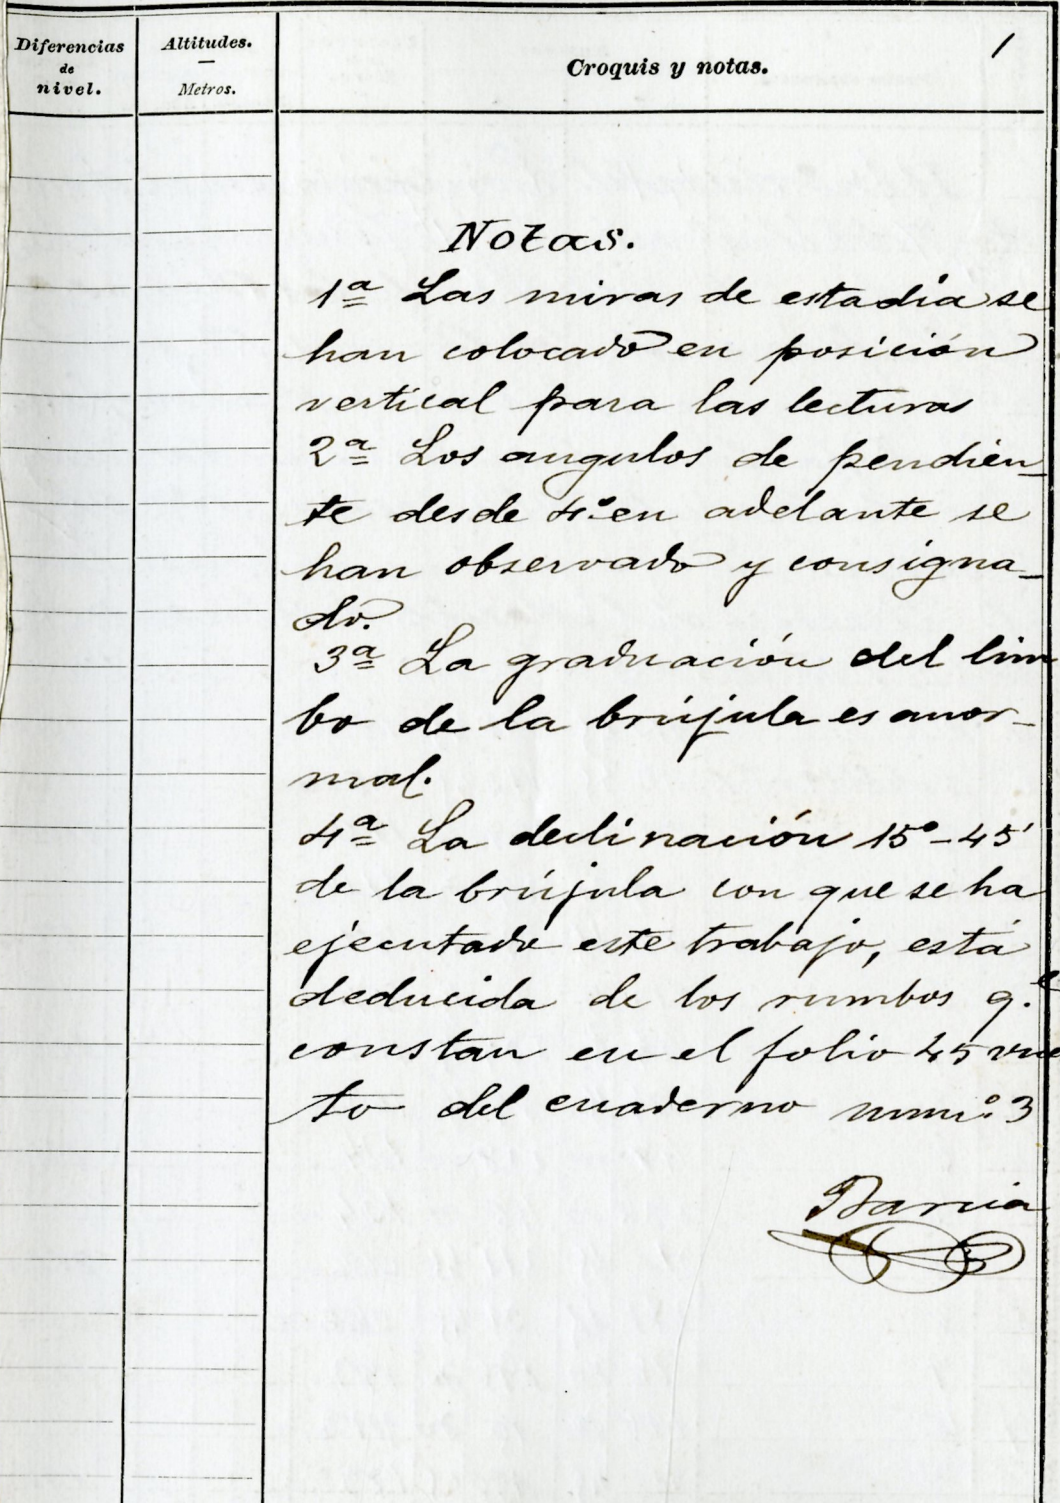 Diferencias
de
nivel.
Altitudes.
Metros.
Croquis y notas.
1
Notas.
1ª Las miras de estadia se
han colocado en posición
vertical para las lecturas
2ª Los angulos de pendien-
te desde 4º en adelante se
han observado y consigna-
do.
3ª La graduación del lim
bo de la brújula es anor-
mal.
4ª La declinación 15º-45'
de la brújula con que se ha
ejecutado este trabajo, está
deducida de los rumbos q.e
constan en el folio 45 vuel
to del cuaderno numº 3
Barcia